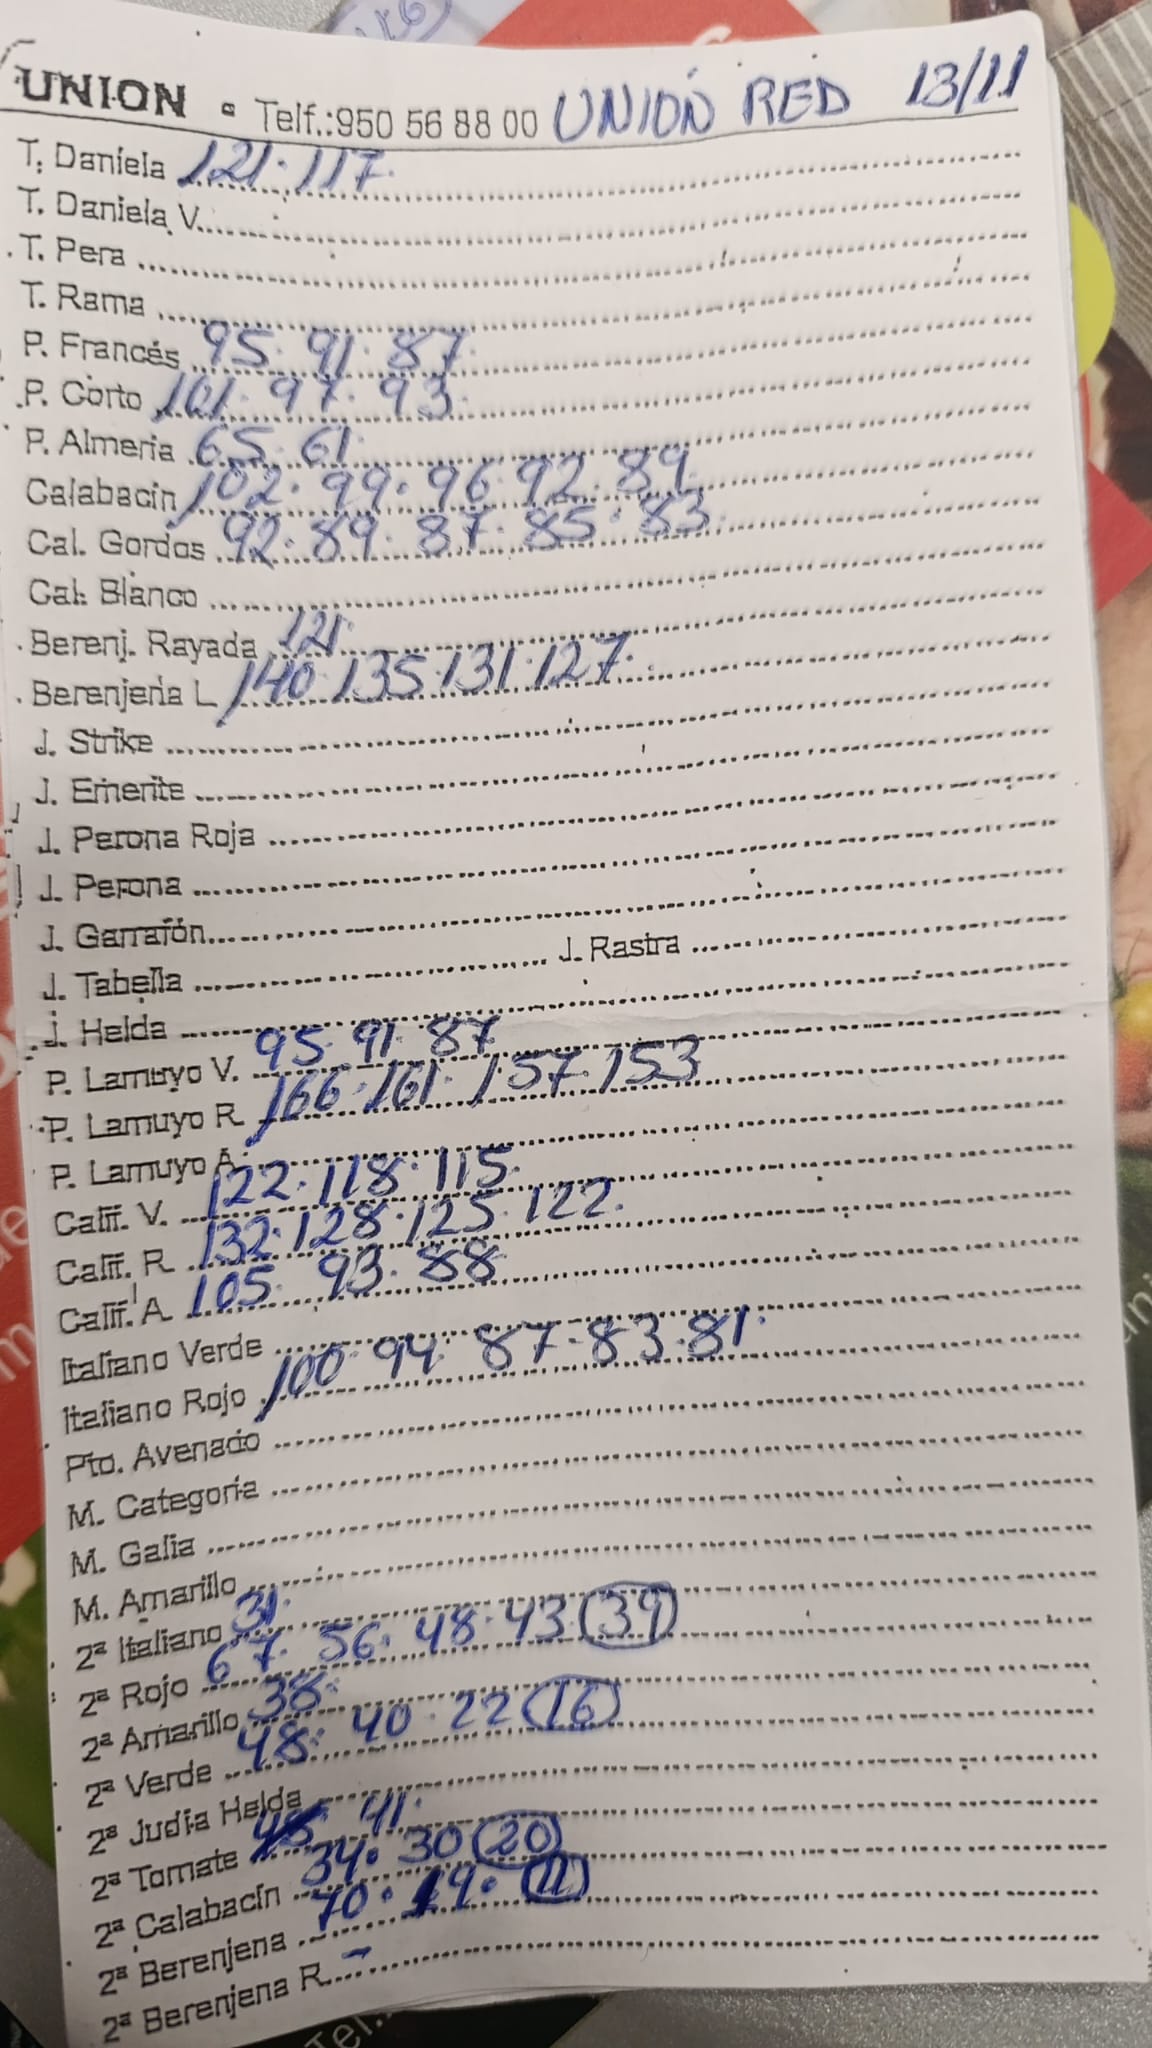 UNION - Telf.:950 56 88 00 UNIÓN RED 13/11
T. Daniela 121. 117.
T. Daniela V.
T. Pera
T. Rama
P. Francés 95. 91. 87.
P. Corto 101. 97. 93.
P. Almeria 65. 61.
Calabacin 102. 99. 96. 92. 89.
Cal. Gordos 92. 89. 87. 85. 83.
Cal. Blanco
Berenj. Rayada 121.
Berenjena L 140. 135. 131. 127.
J. Strike
J. Emerite
J. Perona Roja
J. Perona
J. Garrafón
J. Tabella J. Rastra
J. Helda
P. Lamuyo V. 95. 91. 87
P. Lamuyo R. 166. 161. 157. 153
P. Lamuyo A.
Calif. V. 122. 118. 115.
Calif. R. 132. 128. 125. 122.
Calif. A. 105. 93. 88
Italiano Verde
Italiano Rojo 100. 94. 87. 83. 81.
Pto. Avenado
M. Categoría
M. Galia
M. Amarillo
2ª Italiano 31.
2ª Rojo 67. 56. 48. 43. 39
2ª Amarillo 38.
2ª Verde 48. 40. 22 16
2ª Judía Helda
2ª Tomate 41.
2ª Calabacín 34. 30 20
2ª Berenjena 70.
2ª Berenjena R. -
Tel.